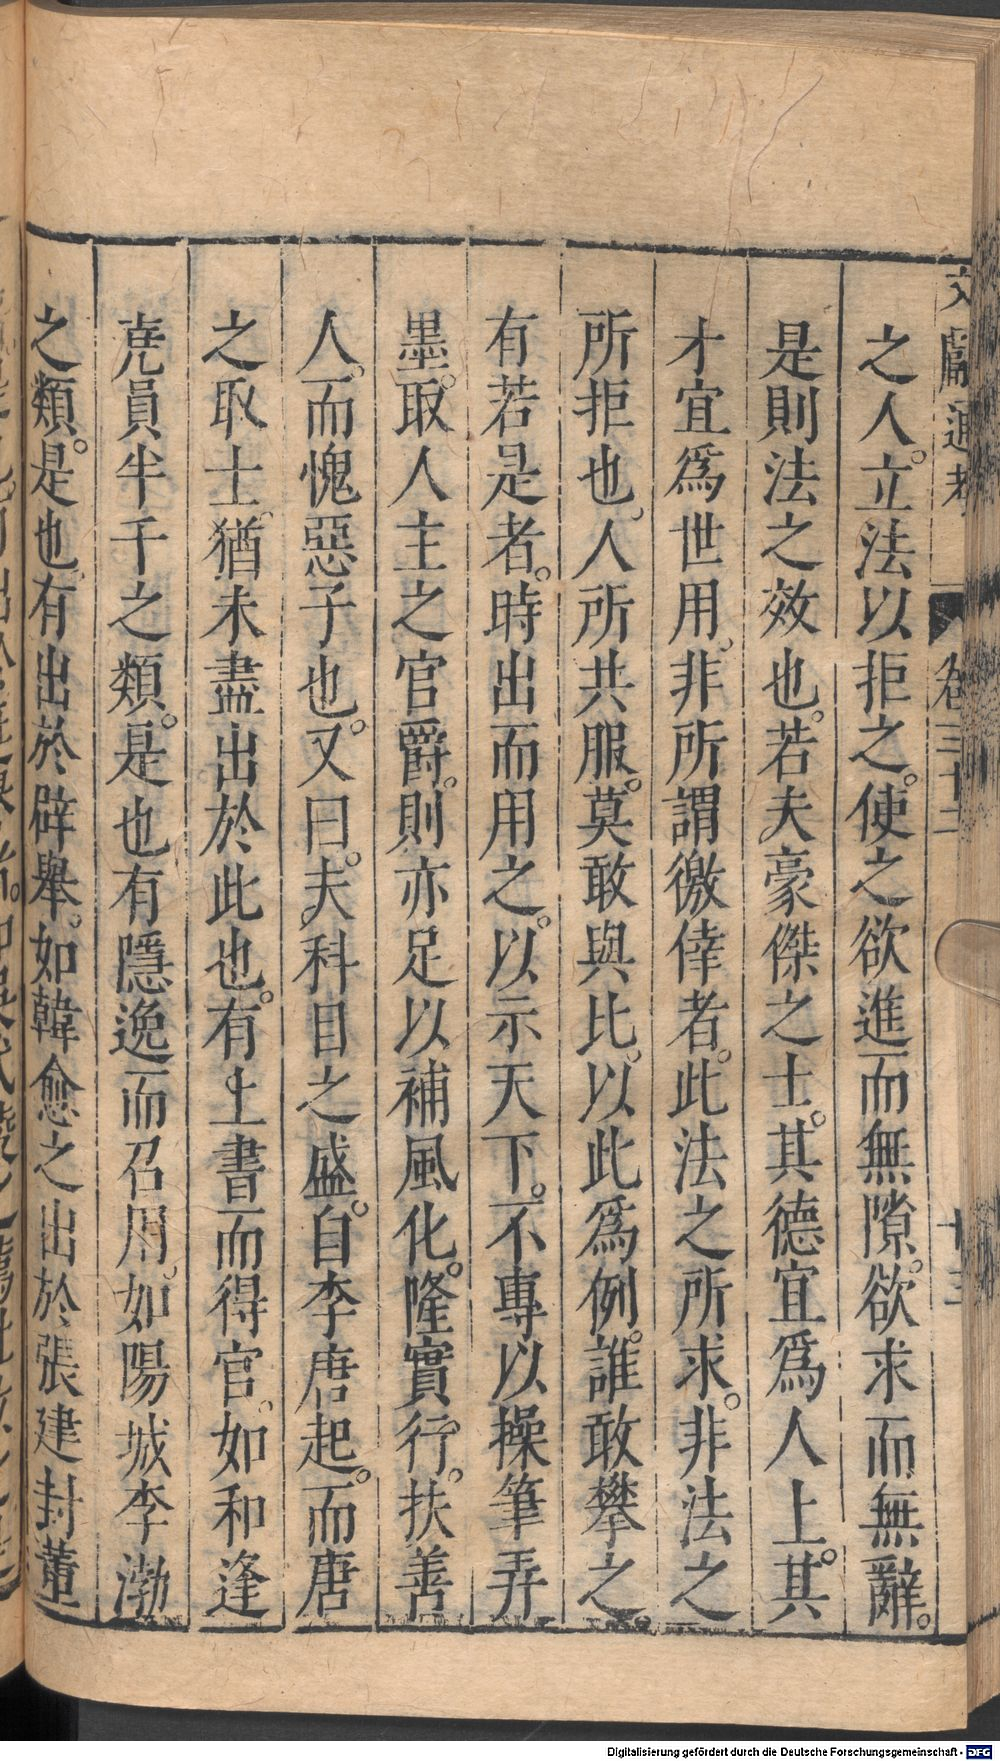 文獻通考 卷三十三 十三
之人。立法以拒之。使之欲進而無隙。欲求而無辭。
是則法之效也。若夫豪傑之士。其德宜爲人上。其
才宜爲世用。非所謂徼倖者。此法之所求。非法之
所拒也。人所共服。莫敢與比。以此爲例。誰敢攀之
有若是者。時出而用之。以示天下。不專以操筆弄
墨。取人主之官爵。則亦足以補風化。隆實行。扶善
人。而愧惡子也。又曰。夫科目之盛。自李唐起。而唐
之取士。猶未盡出於此也。有上書而得官。如和逢
堯員半千之類。是也有隱逸而召用。如陽城李渤
之類。是也。有出於辟舉。如韓愈之出於張建封董
Digitalisierung gefördert durch die Deutsche Forschungsgemeinschaft - DFG